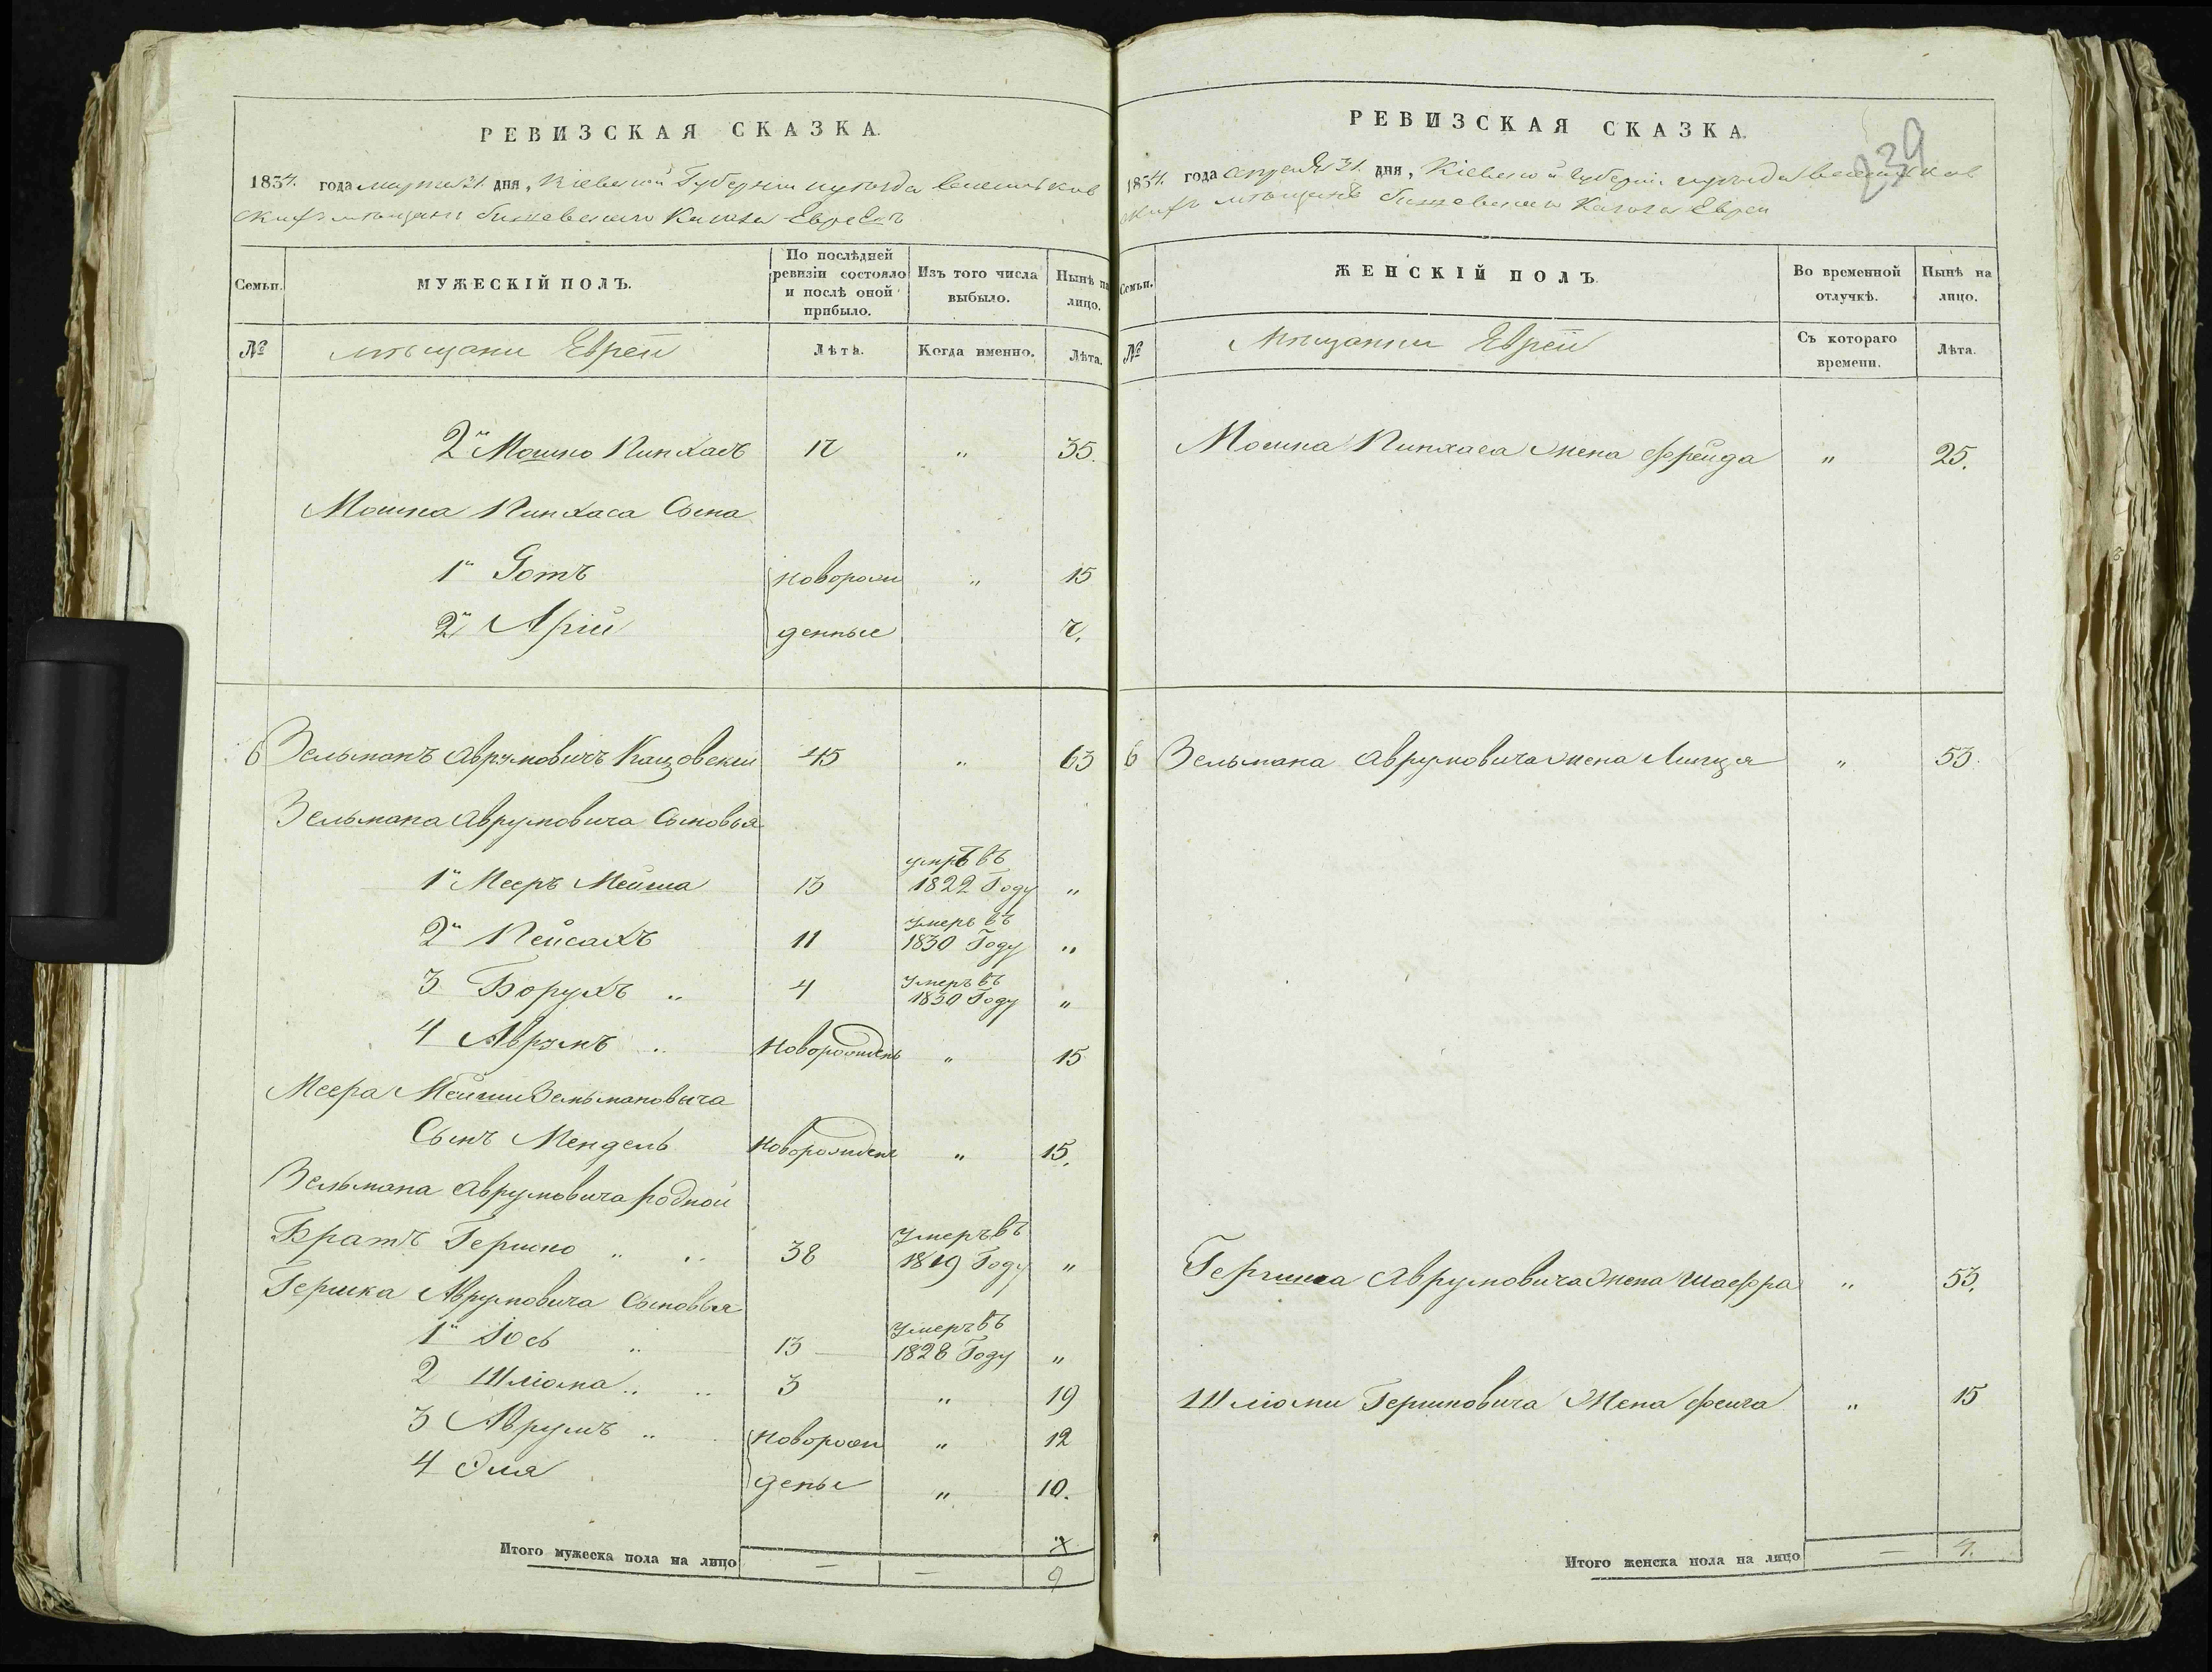 РЕВИЗСКАЯ СКАЗКА.
1834. года марта 31. дня, Кіевской Губерніи города
скихъ мѣщанъ Кагала Евреевъ
Семьи.
МУЖЕСКІЙ ПОЛЪ.
По послѣдней ревизіи состояло и послѣ оной прибыло.
Изъ того числа выбыло.
Нынѣ на лицо.
№
мѣщани Евреи
Лѣта.
Когда именно.
Лѣта.
2й Мошко Пинхасъ 17 " 35.
Мошка Пинхаса Сына
1й Готъ новорож " 15
2й Арій денные 7.
6 Зельманъ Аврумовичъ Кацовскій 45 " 63
Зельмана Аврумовича Сыновья
1й Мееръ Мейша 13 умръ въ 1822 Году "
2й Пейсахъ 11 Умеръ въ 1830 Году "
3 Борухъ " 4 Умеръ въ 1830 Году "
4 Аврумъ " Новорожденъ " 15
Меера Мейши Зельмановича
Сынъ Мендель Новорожденъ " 15.
Зельмана Аврумовича родной
Братъ Гершко " " 38 Умеръ въ 1819 Году "
Гершка Аврумовича Сыновья
1й Іось " 13 Умеръ въ 1828 Году "
2 Шліома " " 3 " 19
3 Аврумъ " Новорож " 12
4 Эля дены " 10.
Итого мужеска пола на лицо — — 9
РЕВИЗСКАЯ СКАЗКА.
239
1834. года апреля 31. дня, Кіевской Губерніи города
скихъ мѣщанъ Кагала Евреи
Семьи.
ЖЕНСКІЙ ПОЛЪ.
Во временной отлучкѣ.
Нынѣ на лицо.
№
Мѣщанки Евреи
Съ котораго времени.
Лѣта.
Мошка Пинхаса жена Фрейда " 25.
6 Зельмана Аврумовича жена " 53.
Гершка Аврумовича жена Шаефра " 53.
Шліоми Гершковича Жена Феига " 15
Итого женска пола на лицо — 4.